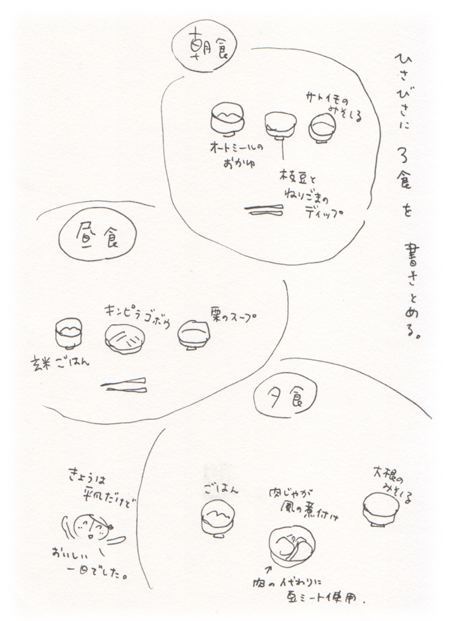 ひさびさに3食を書きとめる。
朝食
オートミールの
おかゆ
枝豆と
ねりごまの
ディップ
サトイモの
みそしる
昼食
玄米ごはん
キンピラゴボウ
栗のスープ
夕食
ごはん
肉じゃが
風の煮付け
肉の代わりに
豆ミート使用.
大根の
みそしる
きょうは
平凡だけど
おいしい
一日でした。